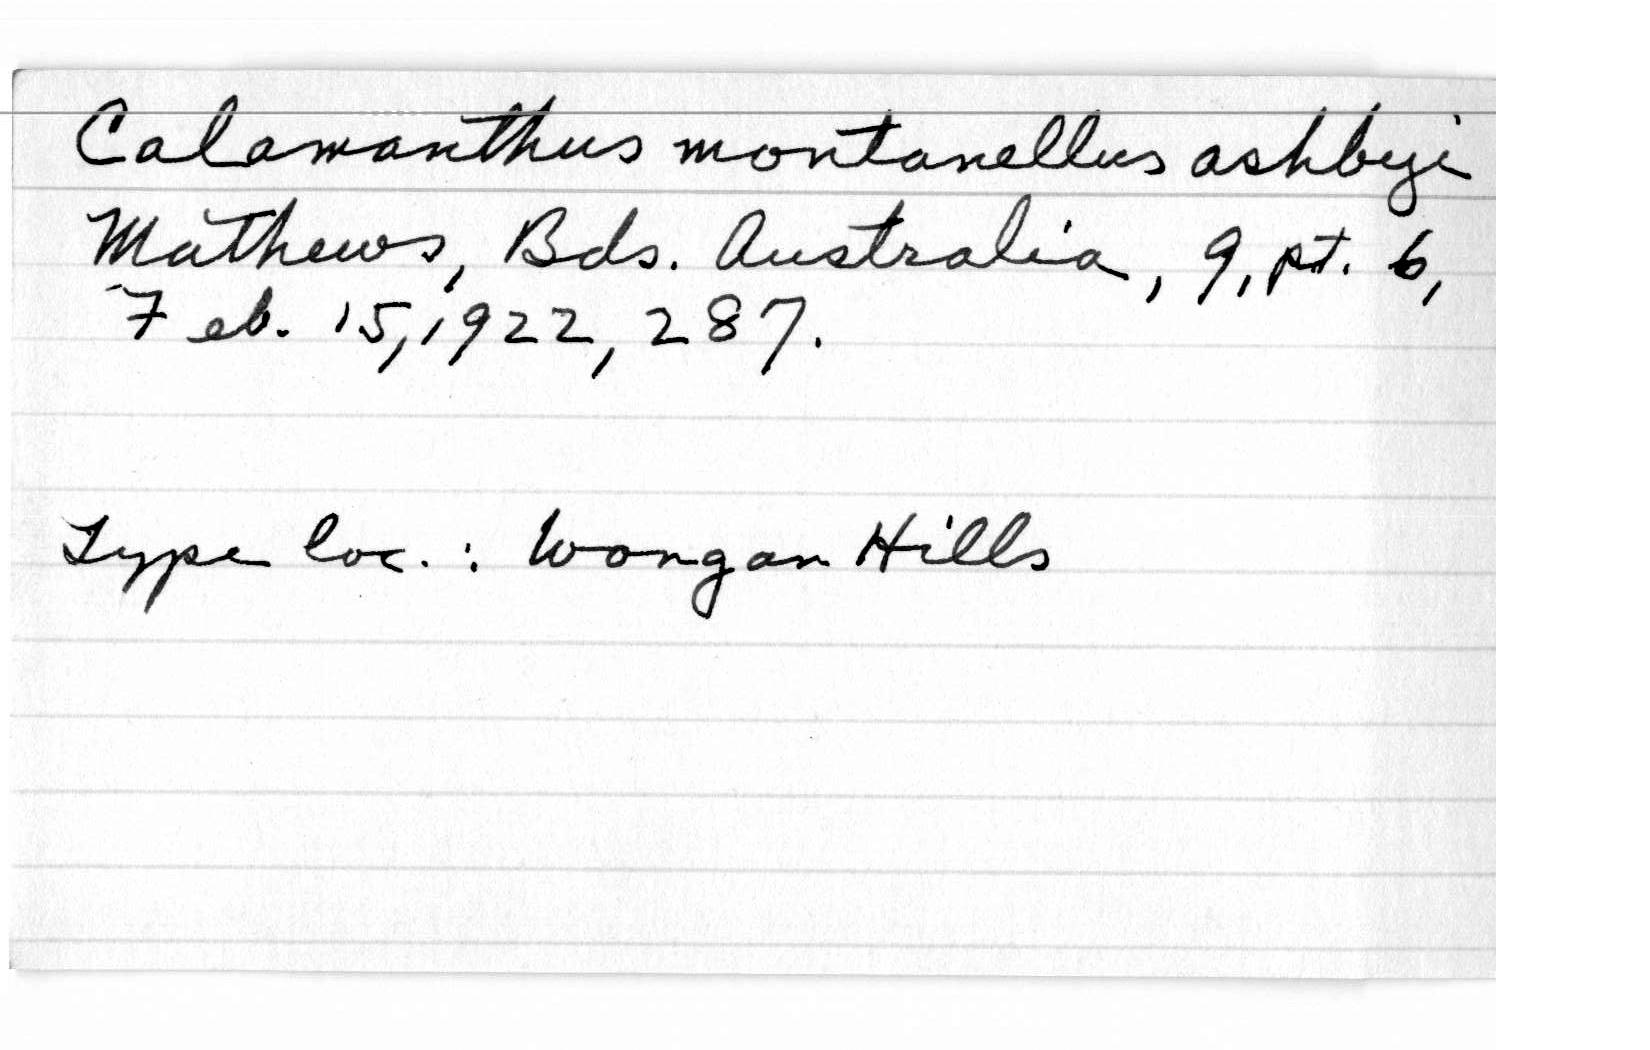 Calamanthus montanellus ashbyi
Mathews, Bds. Australia, 9, pt. 6,
Feb. 15, 1922, 287.
Type loc. : Wongan Hills